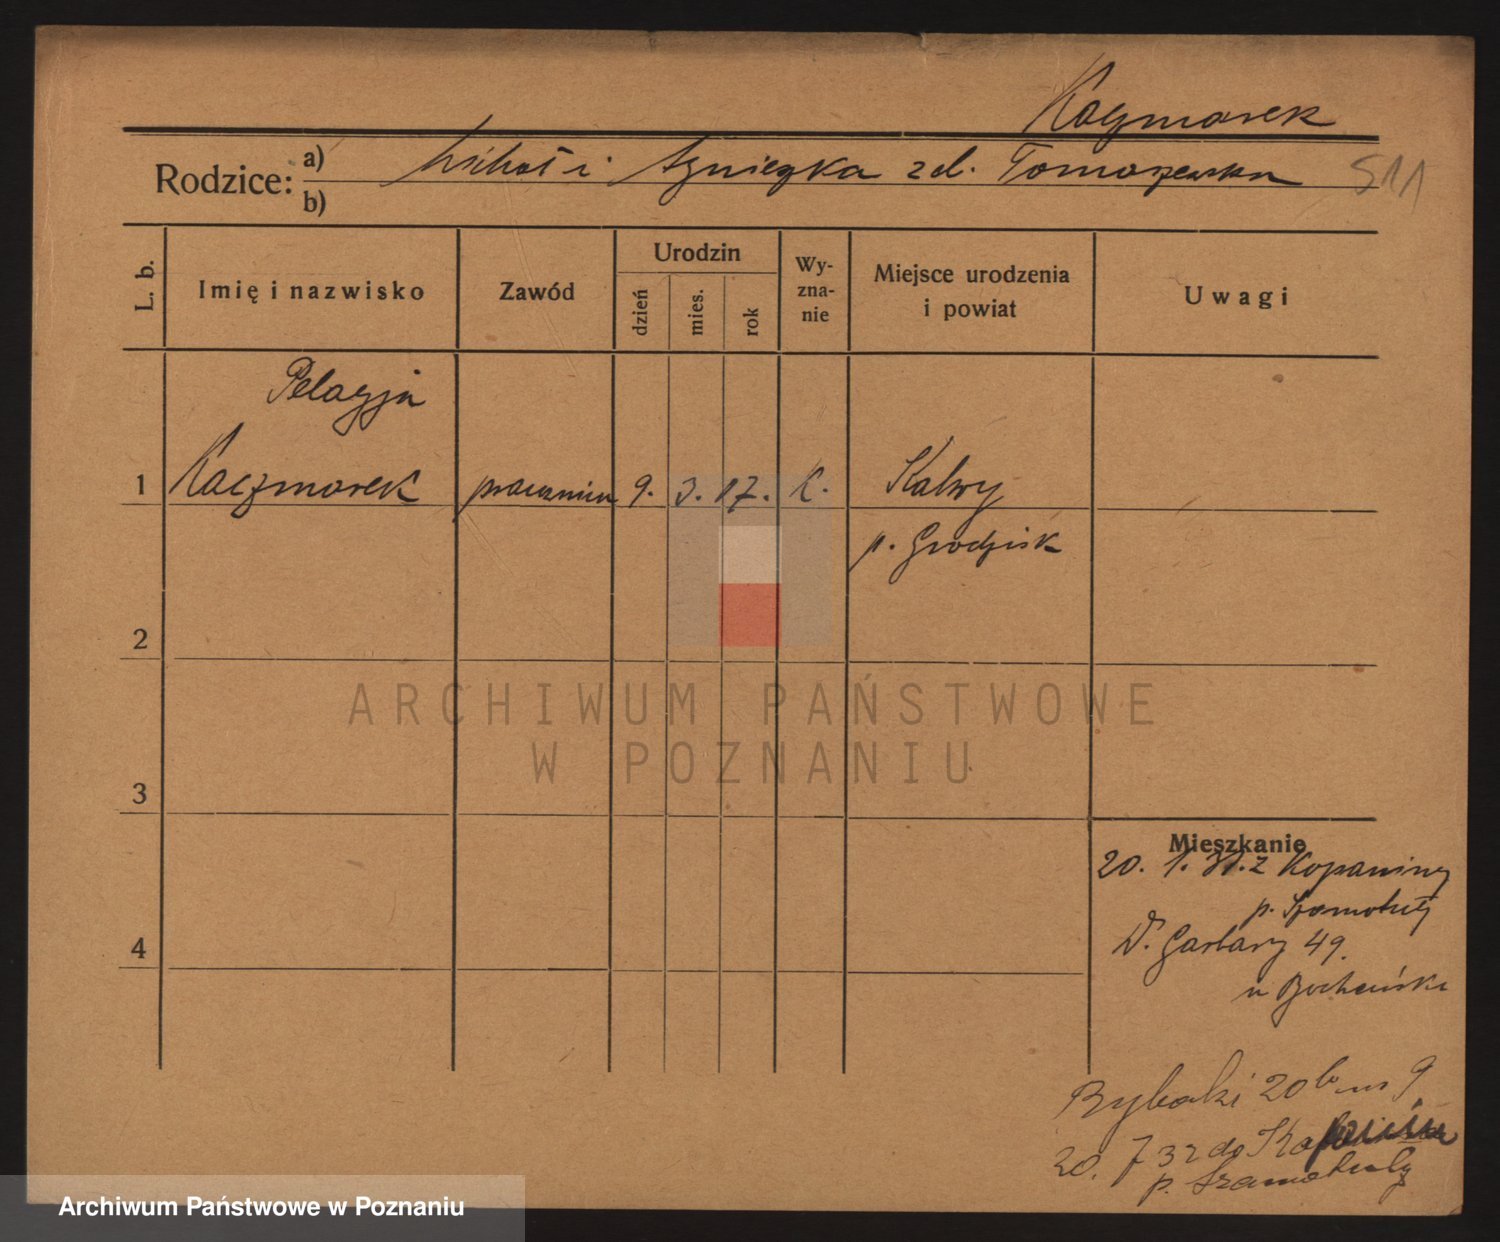 Kaczmarek
Rodzice: a) Michał i Agnieszka z d. Tomaszewska 511
b)
L. b.
Imię i nazwisko
Zawód
Urodzin
dzień
mies.
rok
Wy-
zna-
nie
Miejsce urodzenia
i powiat
Uwagi
Pelagja
1 Kaczmarek pracownica 9. 3. 17. k. Kalwy
p. Grodzisk
2
ARCHIWUM PAŃSTWOWE
W POZNANIU
3
Mieszkanie
20. 1. 31. z Kopaniny
p. Szamotuły
4
D. Garbary 49.
u Bocheński
Rybaki 20b m 9
20. 7 32 do
p. Szamotuły
Archiwum Państwowe w Poznaniu